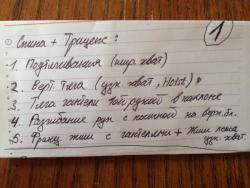 ① Спина + Трицепс:
1. Подтягивания (шир. хват)
2. Верт. тяга (узк. хват, Hoist)
3. Тяга гантели 1ой рукой в наклоне
4. Разгибание рук с косичкой на верх. бл.
5. Франц. жим с гантелями + Жим лежа
узк. хват.
1